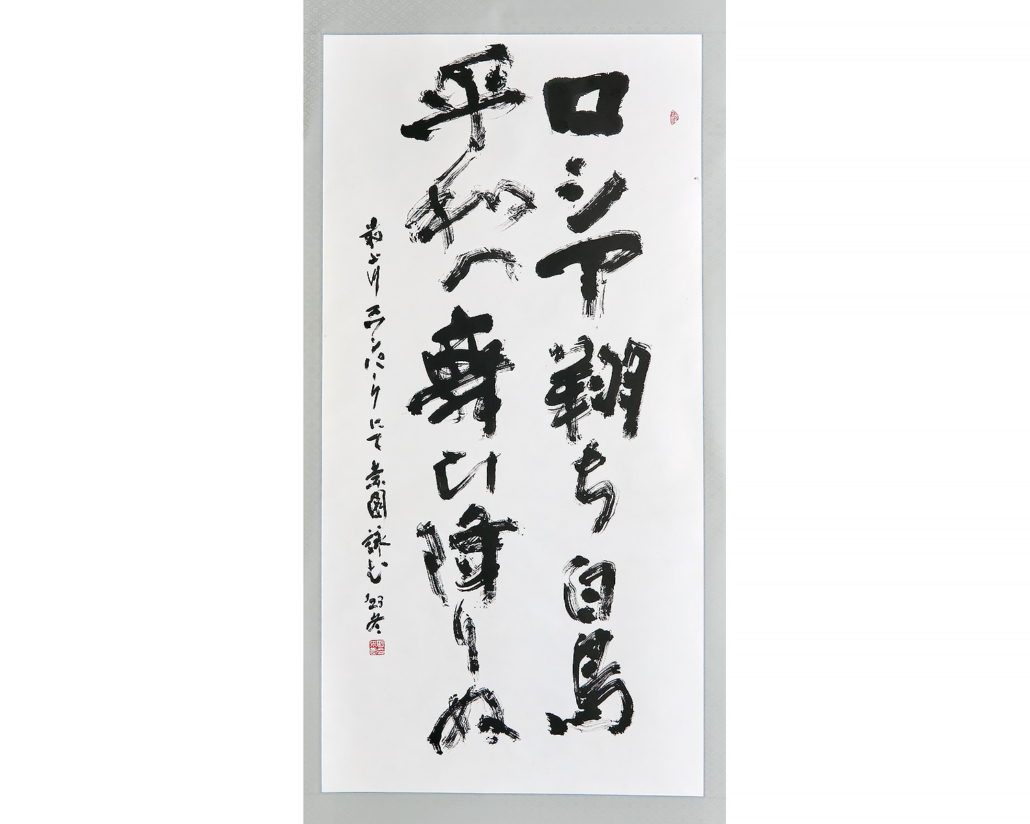 ロシア翔ち白鳥
平和へ舞ひ降りぬ
最上川スワンパークにて 素園 詠む '23冬